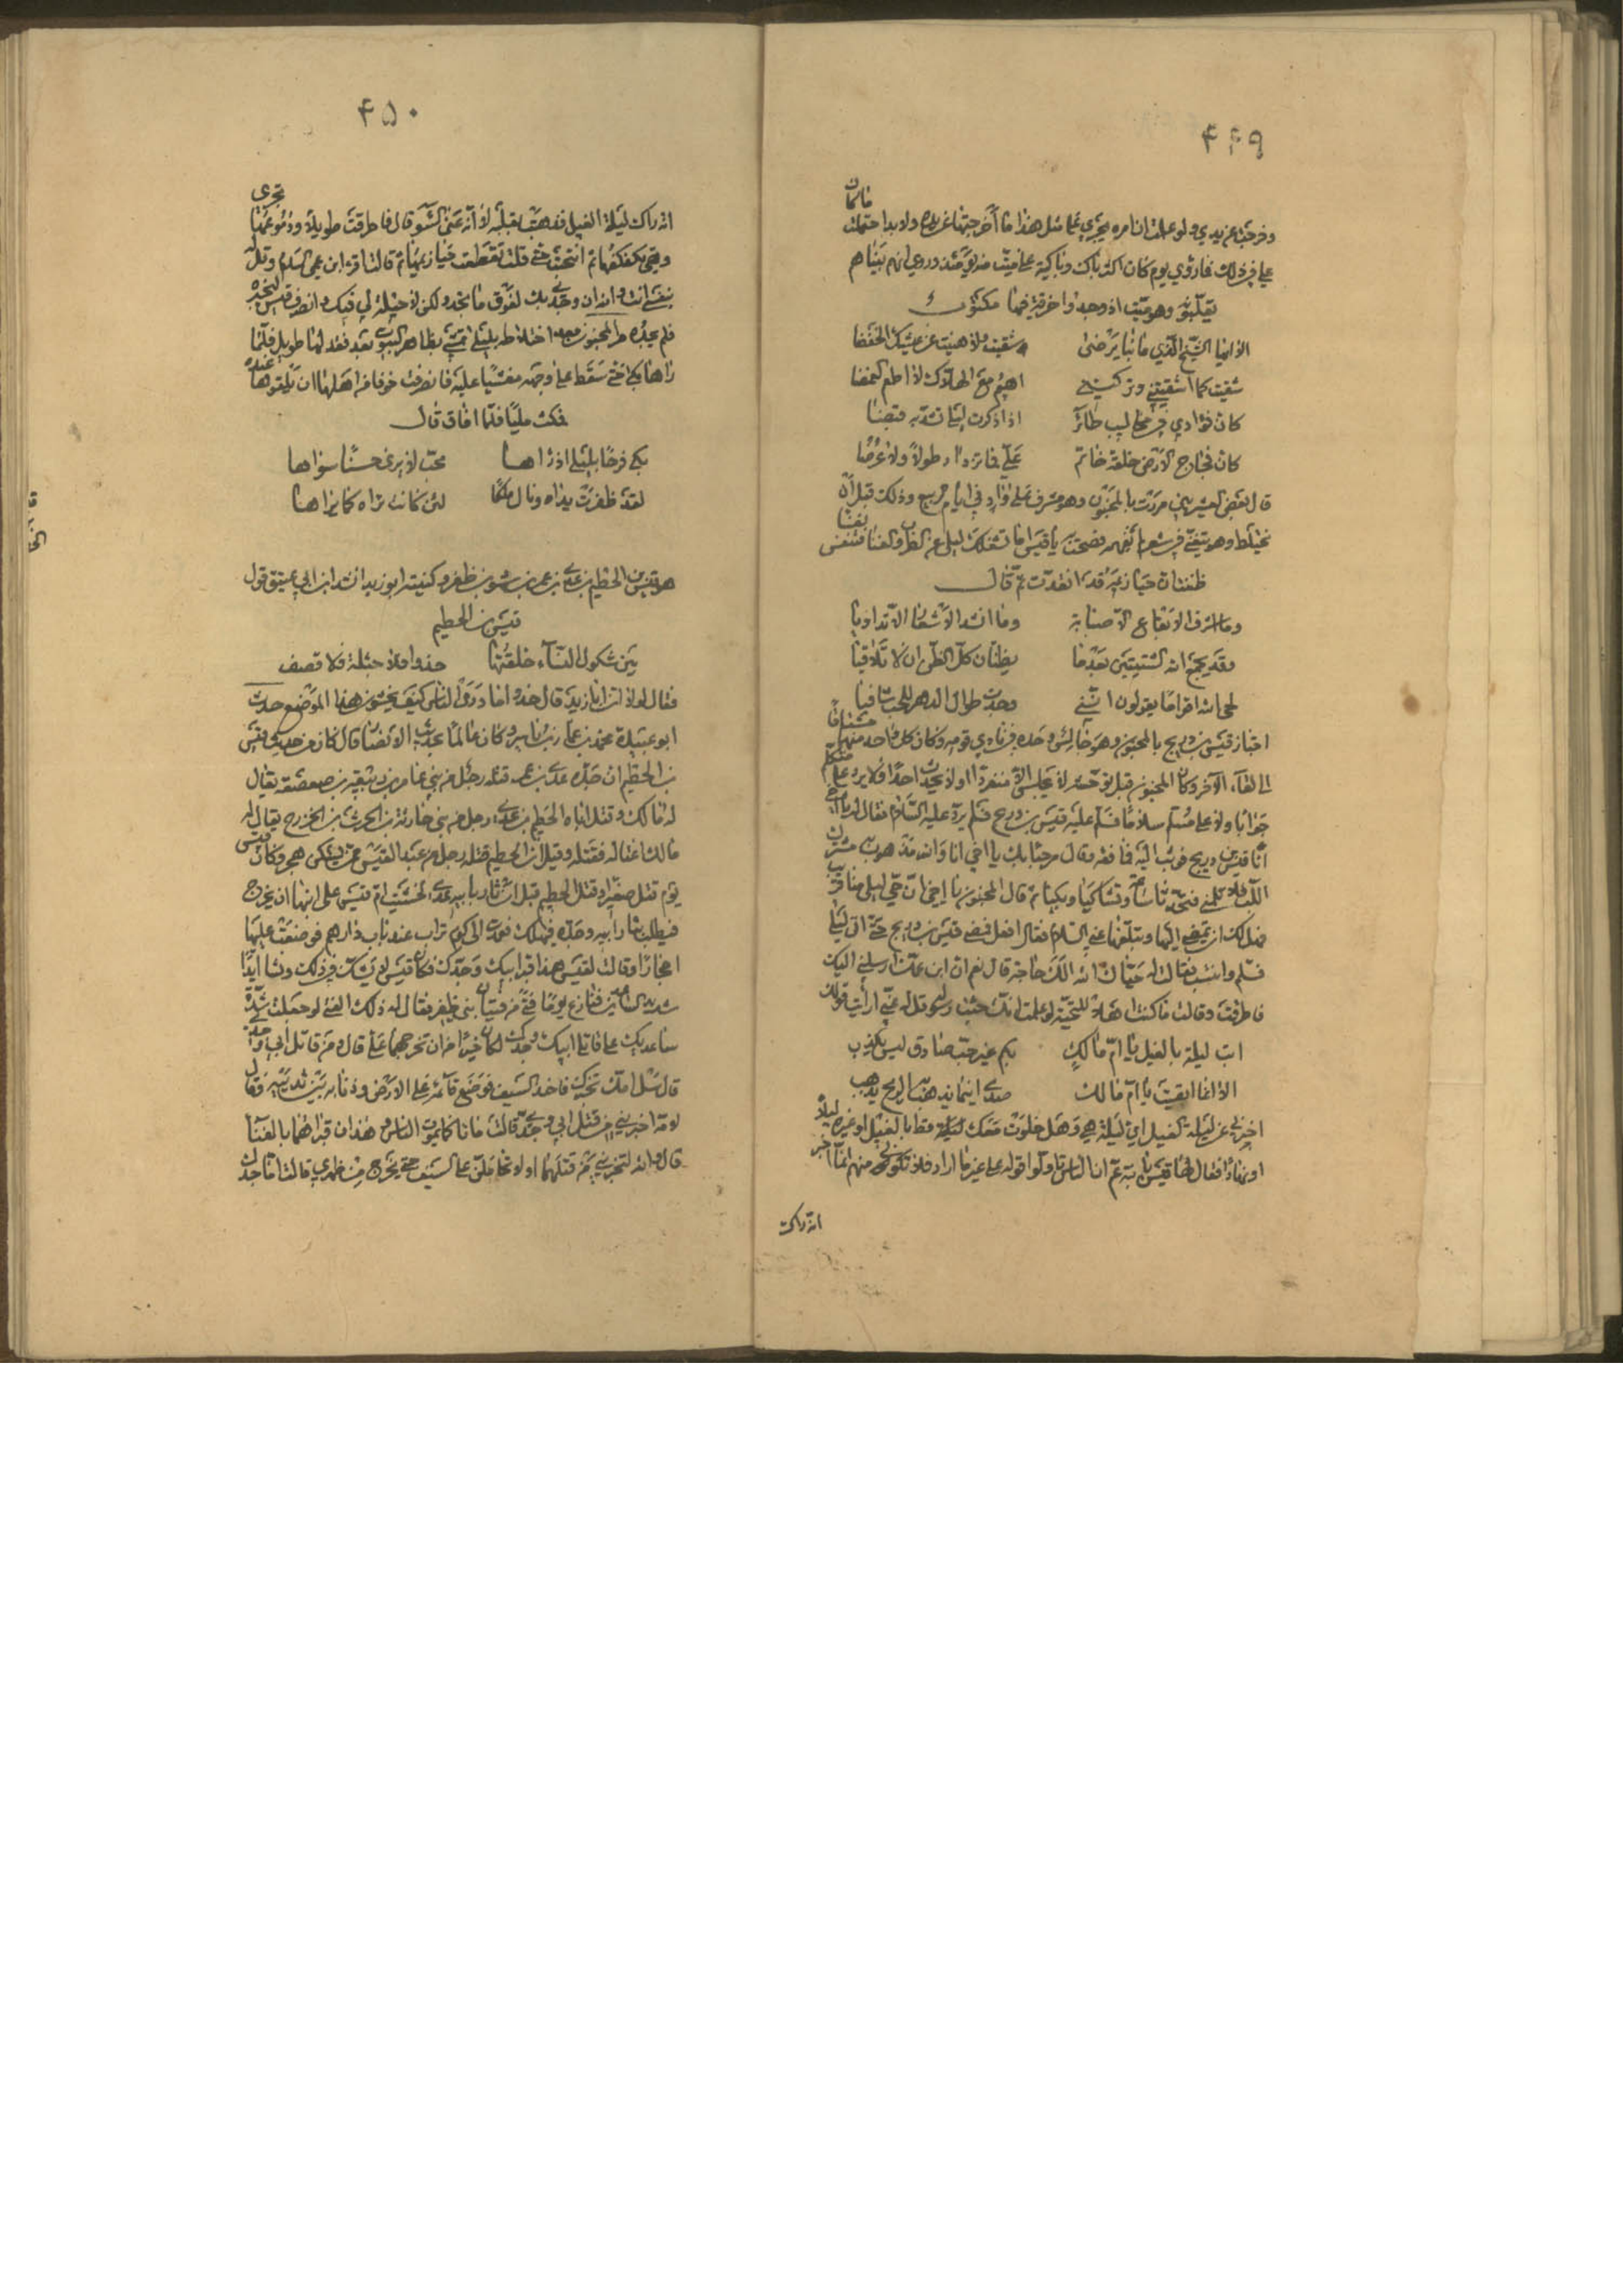 ۴۴۹
فاتمان
وخرجت عن يدي ولو علمت ان امره يجري على مثل هذا ما اخرجتها عن يده ولا بد احتملت
علي في ذلك فما رؤي يوم كان اكثر باك وباكية على ميت منه يومئذ وروي انهم بيناهم
يقلبونه وهو ميت اذ وجدوا خرقة فيها مكتوب
الا ايها الشيخ الذي ما بنا يرضى شقيت ولا هنيت عن عيشك الخفضا
شقيت كما اشقيتني وتركتني اهيم مع الهلاك لا اطعم الغمضا
كان فؤادي في مخاليب طائر اذا ذكرت ليلى تشد به قبضا
كان فجاج الارض حلقة خاتم علي فما تزداد طولا ولا عرضا
قال بعض العشيرة مررت بالمجنون وهو مشرف على واد في ايام الربيع وذلك قبل ان
يختلط وهو يتغنى في شعر لم افهمه فصحت به يا قيس اما تشغلك ليلى عن الطرب والغنا فتنفس نفسا
ظننت ان حيازيمه قد انقدت ثم قال
وما اشرف الايفاع الا صبابة وما انشد الاشعار الا تداويا
وقد يجمع الله الشتيتين بعدما يظنان كل الظن ان لا تلاقيا
لحى الله اقواما يقولون انني وجدت طوال الدهر للحب شافيا
اجتاز قيس بن ذريح بالمجنون وهو جالس وحده في نادي قومه وكان كل واحد منهما مشتاقا
الى لقاء الآخر وكان المجنون قبل توحشه لا يجلس الا منفردا ولا يحدث احدا فلا يرد على متكلم
جوابا ولا على مسلم سلاما فسلم عليه قيس بن ذريح فلم يرد عليه السلام فقال له يا اخي
انا قيس بن ذريح فوثب اليه فعانقه وقال مرحبا بك يا اخي انا والله مذهوب مشترك
اللب فلا تلمني فتحدثا ساعة وتشاكيا وبكيا ثم قال المجنون يا اخي ان حي ليلى منا قريب
فهل لك ان تمضي اليها وتبلغها عني السلام فقال افعل فمضى قيس بن ذريح حتى اتى ليلى
فسلم وانتسب فقالت له حياك الله الك حاجة قال نعم ان ابن عمك ارسلني اليك
فاطرقت وقالت ما كنت اهلا للتحية لو علمت انك حيث رسوله قل له عني ارأيت قولك
ابت ليلة بالغيل يا ام مالك بكم غير حب صادق ليس يكذب
الا انما ابقيت يا ام مالك صدى اينما يذهب به الريح يذهب
اخبرني عن ليلة الغيل اي ليلة هي وهل خلوت معك ليلة قط بالغيل او غيره ليلا
او نهارا فقال لها قيس يا ابنة عم ان الناس تاولوا قوله على غير ما اراد فلا تكوني منهم انما اخبر
انه راك
۴۵۰
انه راك ليلة الغيل فذهبت بقلبه لا انه عناك بسوء قال فاطرقت طويلا ودموعها تجري
وهي تكفكفها ثم انتحبت حتى قلت تقطعت حيازيمها ثم قالت اقرء ابن عمي السلام وقل له
بنفسي انت والله ان وجدي بك لفوق ما تجد ولكن لا حيلة لي فيك وانصرف قيس ليخبره
فلم يجده مر المجنون بعد اختلاطه بليلى تمشي بظاهر البيوت بعد فقد لها طويل فلما
راها بكى حتى سقط على وجهه مغشيا عليه فانصرفت خوفا من اهلها ان يلقوها عنده
فمكث مليا فلما افاق قال
بكى فرحا بليلى اذ راها محب لا يرى حسنا سواها
لقد ظفرت يداه ونال ملكا لئن كانت تراه كما يراها
هو قيس بن الخطيم بن عدي بن عمرو بن سود بن ظفر وكنيته ابو زيد انشد ابن ابي عتيق قول
قيس بن الخطيم
بين شكول النساء خلقتها حذوا فلا جبلة فلا قصف
فقال لولا ان ابا زيد قال حذوا ما درى الناس كيف يحشون هذا الموضع حدث
ابو عبيدة محمد بن عمار بن ياسر وكان عالما بحديث الانصار قال كان من حديث قيس
بن الخطيم ان جده عدي بن عمرو قتله رجل من بني عامر بن ربيعة بن صعصعة يقال
له مالك وقتل اباه الخطيم بن عدي رجل من بني حارثة بن الحرث بن الخزرج يقال له
مالك اغتاله فقتله وقيل ان الخطيم قتله رجل من عبد القيس ممن يسكن هجر وكان قيس
يوم قتل صغيرا وقتل الخطيم قبل ان يثار بابيه عدي فخشيت ام قيس على ابنها ان يخرج
فيطلب بثار ابيه وجده فيهلك فعمدت الى كوم تراب عند باب دارهم فوضعت عليها
احجارا وقالت لقيس هذا قبر ابيك وجدك فكان قيس لا يشك في ذلك ونشا ايدا
شديد الساعدين فنازع يوما فتى من فتيان بني ظفر فقال له ذلك الفتى لو جعلت شدة
ساعديك على قاتل ابيك وجدك لكان خيرا من ان تخرجهما علي قال ومن قاتل ابي وجدي
قال سل امك تخبرك فاخذ السيف فوضع قائمه على الارض وذبابه بين ثدييه وقال
لامه اخبريني من قتل ابي وجدي قالت ماتا كما يموت الناس وهذان قبراهما بالفنا
قال والله لتخبريني من قتلهما او لاتحاملن على السيف حتى يخرج من ظهري قالت اما جدك